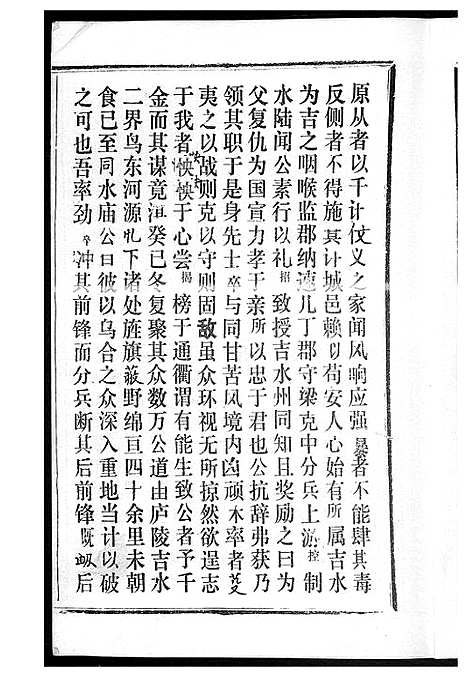 原从者以千计仗义之家闻风响应强暴者不能肆其毒
反侧者不得施其计城邑赖以苟安人心始有所属吉水
为吉之咽喉监郡纳速儿丁郡守梁克中分兵上游控制
水陆闻公素行以礼招致授吉水州同知且奖励之曰为
父复仇为国宣力孝于亲所以忠于君也公抗辞弗获乃
领其职于是身先士卒与同甘苦风境内凶顽木率者芟
夷之以战则克以守则固敌虽众环视无所掠然欲逞志
于我者怏怏于心尝揭榜于通衢谓有能生致公者予千
金而其谋竟洹癸已冬复聚其众数万公道由庐陵吉水
二界鸟东河源乢下诸处旌旗蔽野绵亘四十余里未朝
食已至同水庙公曰彼以乌合之众深入重地当计以破
之可也吾率劲卒冲其前锋而分兵断其后前锋既衂后